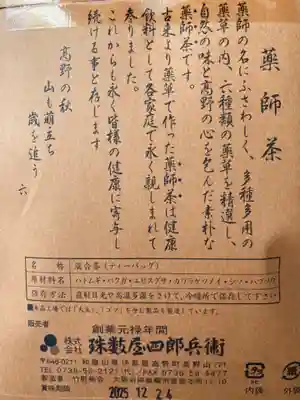 薬師茶
薬師の名にふさわしく、多種多用の
薬草の内、六種類の薬草を精選し、
自然の味と高野の心を包んだ素朴な
薬師茶です。
古来より薬草で作った薬師茶は健康
飲料として各家庭で永く親しまれて
参りました。
これからも永く皆様の健康に寄与し
続ける事と存じます
高野の秋
山も萌立ち
歳を追う 六
名称 混合茶(ティーバッグ)
原材料名 ハトムギ・ハブ茶・エビスグサ・カワラケツメイ・シソ・
保存方法 直射日光や高温多湿をさけて、冷暗所で保存して下さい
■本品工場では「大豆」「ゴマ」を含む製品も製造しています。
販売者
創業元禄年間
株式会社 珠数屋四郎兵衛
〒648-0211 和歌山県伊都郡高野町高野山
TEL 0736-56-2121
FAX 0736-56-5477
製造者
賞味期限 2025 12 24
外箱
内袋